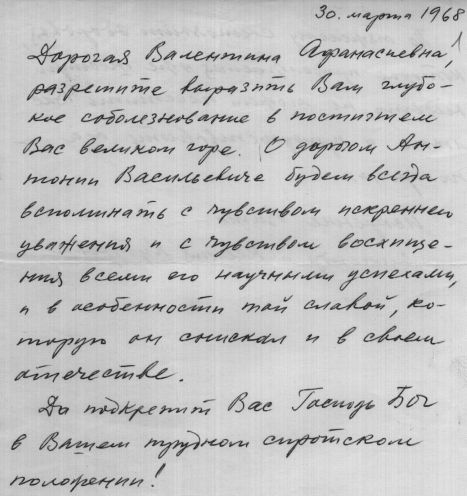 30. марта 1968
Дорогая Валентина Афанасиевна,
разрешите выразить Вам глубо-
кое соболезнование в постигшем
Вас великом горе. О дорогом Ан-
тонии Васильевиче будем всегда
вспоминать с чувством искреннего
уважения и с чувством восхище-
ния всеми его научными успехами,
и в особенности той славой, ко-
торую он снискал и в своем
отечестве.
Да подкрепит Вас Господь Бог
в Вашем трудном сиротском
положении!